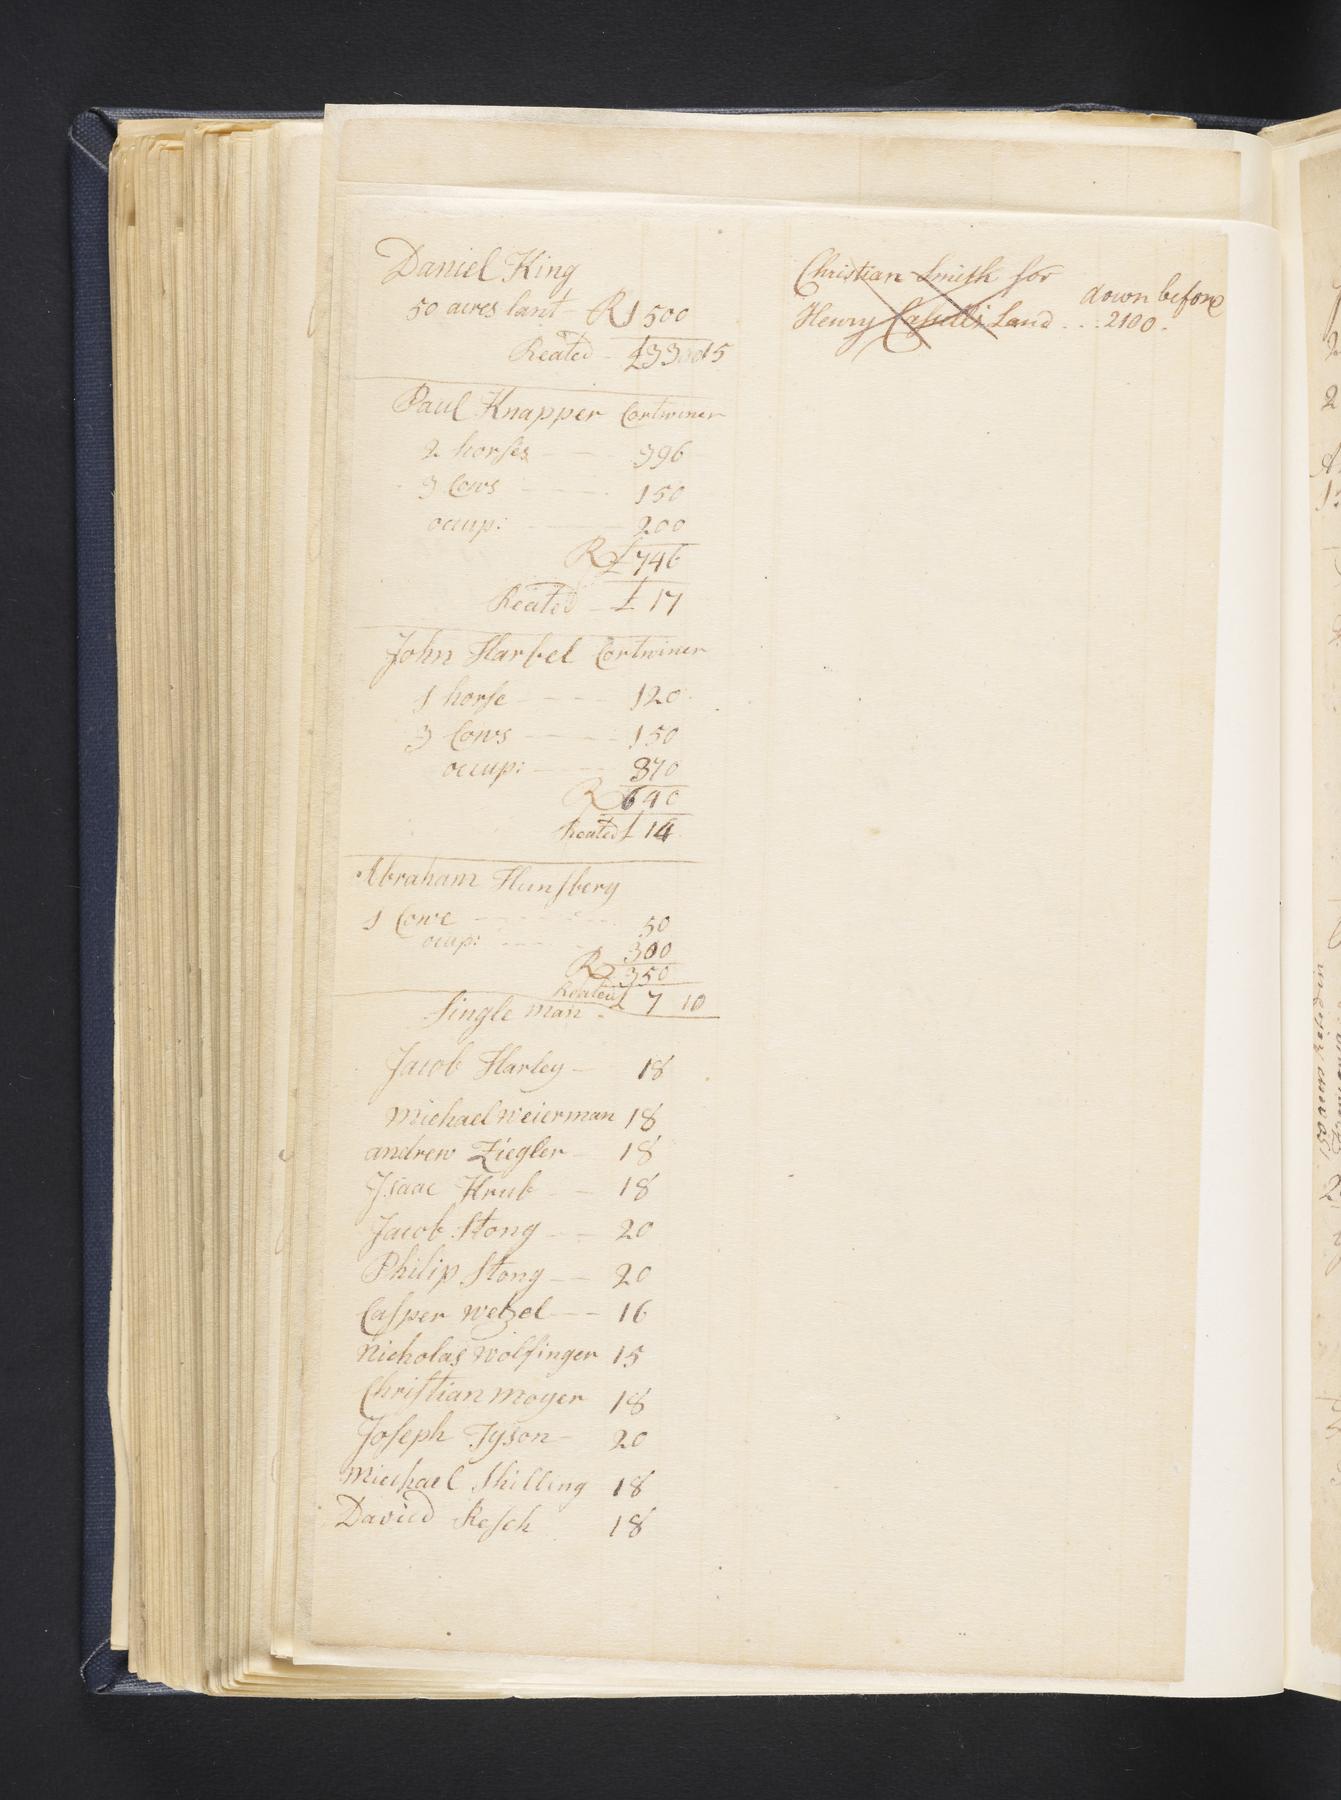 Daniel King
50 acres lant R 1500
Reated £33 15
Paul Knapper Cortwiner
2 horses 396
3 Cows 150
occup: 200
R £746
Reated £ 17
John Harbel Cortwiner
1 horse 120
3 Cows 150
occup: 370
R 640
Reated £ 14
Abraham Hunsberg
1 Cowe 50
ocup: 300
R 350
Reated £ 7 10
Single man
Jacob Harley 18
Michael Weierman 18
andrew Ziegler 18
Isaac Krub 18
Jacob Stong 20
Philip Stong 20
Casper Wetzel 16
Nicholas Wolfinger 15
Christian Moyer 18
Joseph Tyson 20
Michael Shilling 18
David Resch 18
Christian Smith for
Henry Land ... 2100.
down before